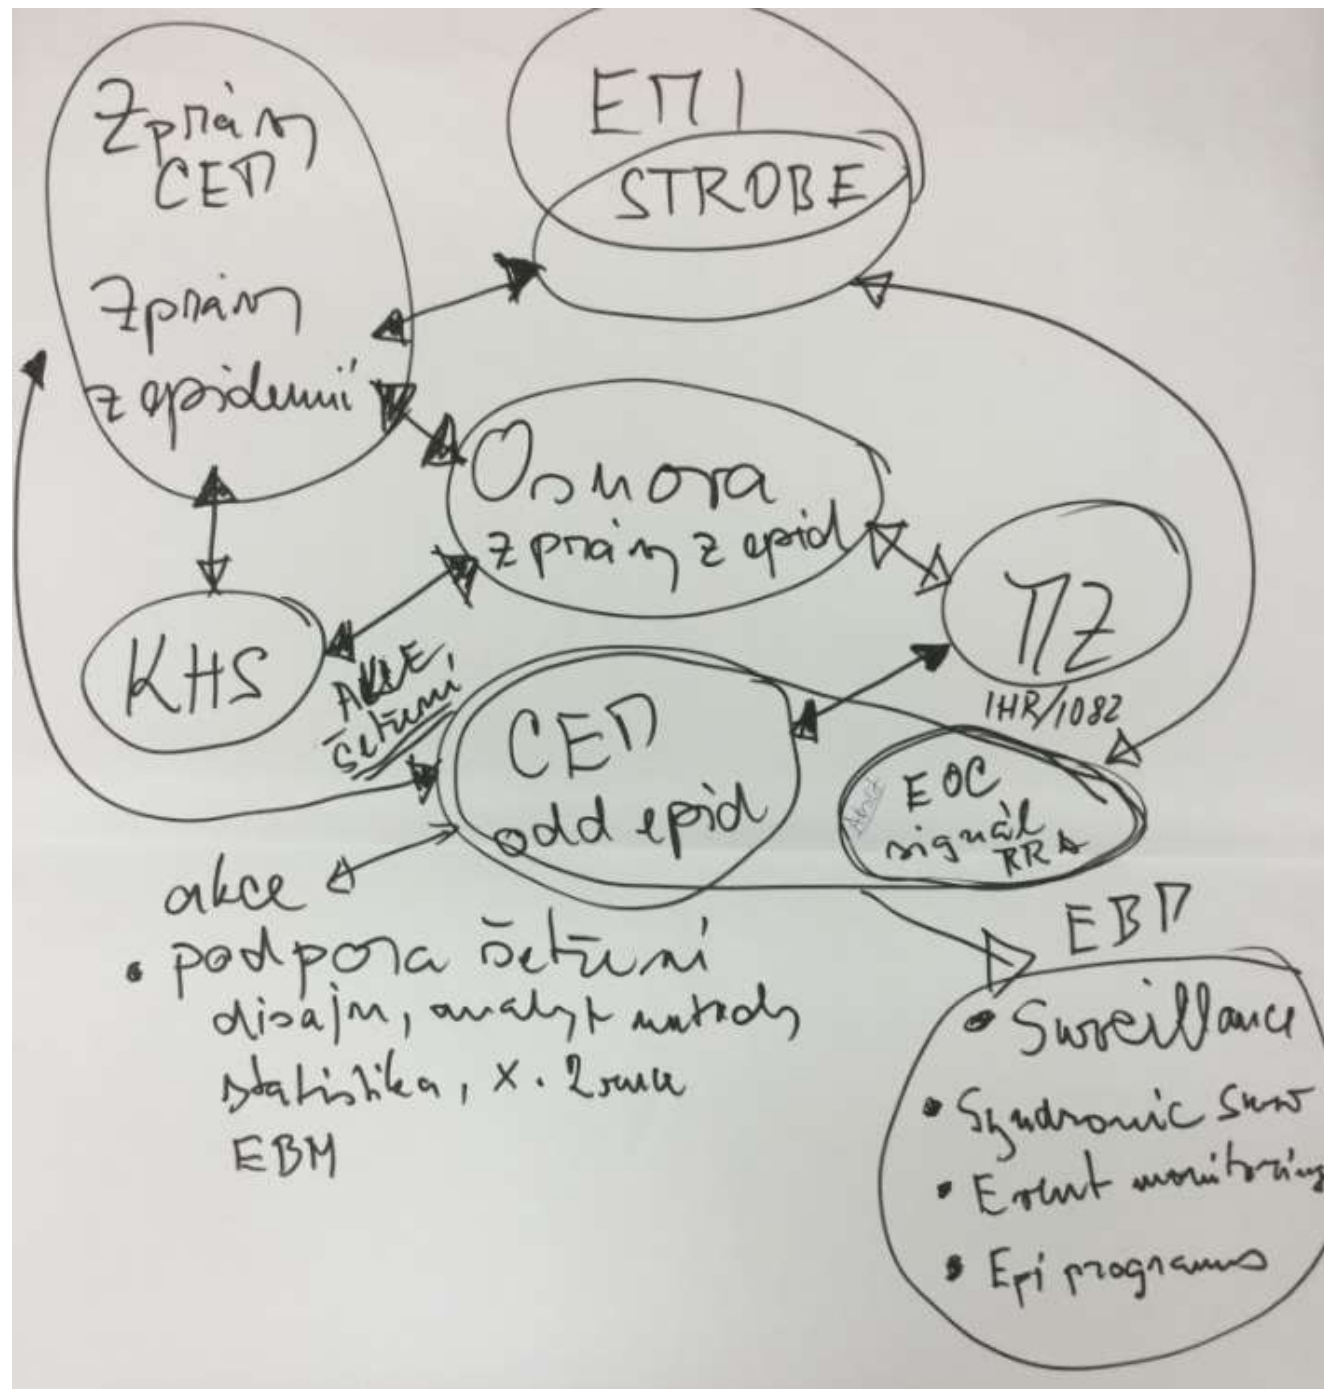 Zprávy
CEM
EMI
STROBE
Zprávy
z epidemií
Osnova
zprávy z epid
MZ
IHR/1082
KHS
AKCE,
šetření
CEM
odd epid
EOC
signál
RRA
akce
• podpora šetření
disajn, analyt metody
statistika, x.
EBM
EBM
• Surveillance
• Syndromic Surv
• Event monitoring
• Epi programs